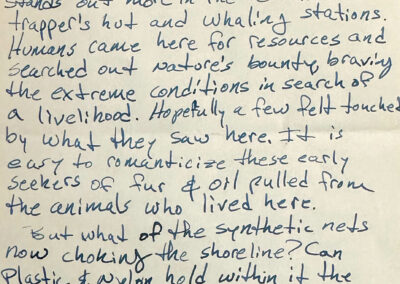 stands out more in the
trapper's hut and whaling stations.
Humans came here for resources and
searched out Nature's bounty, braving
the extreme conditions in search of
a livelihood. Hopefully a few felt touched
by what they saw here. It is
easy to romanticize these early
seekers of fur & oil pulled from
the animals who lived here.
But what of the synthetic nets
now choking the shoreline? Can
Plastic & nylon hold within it the